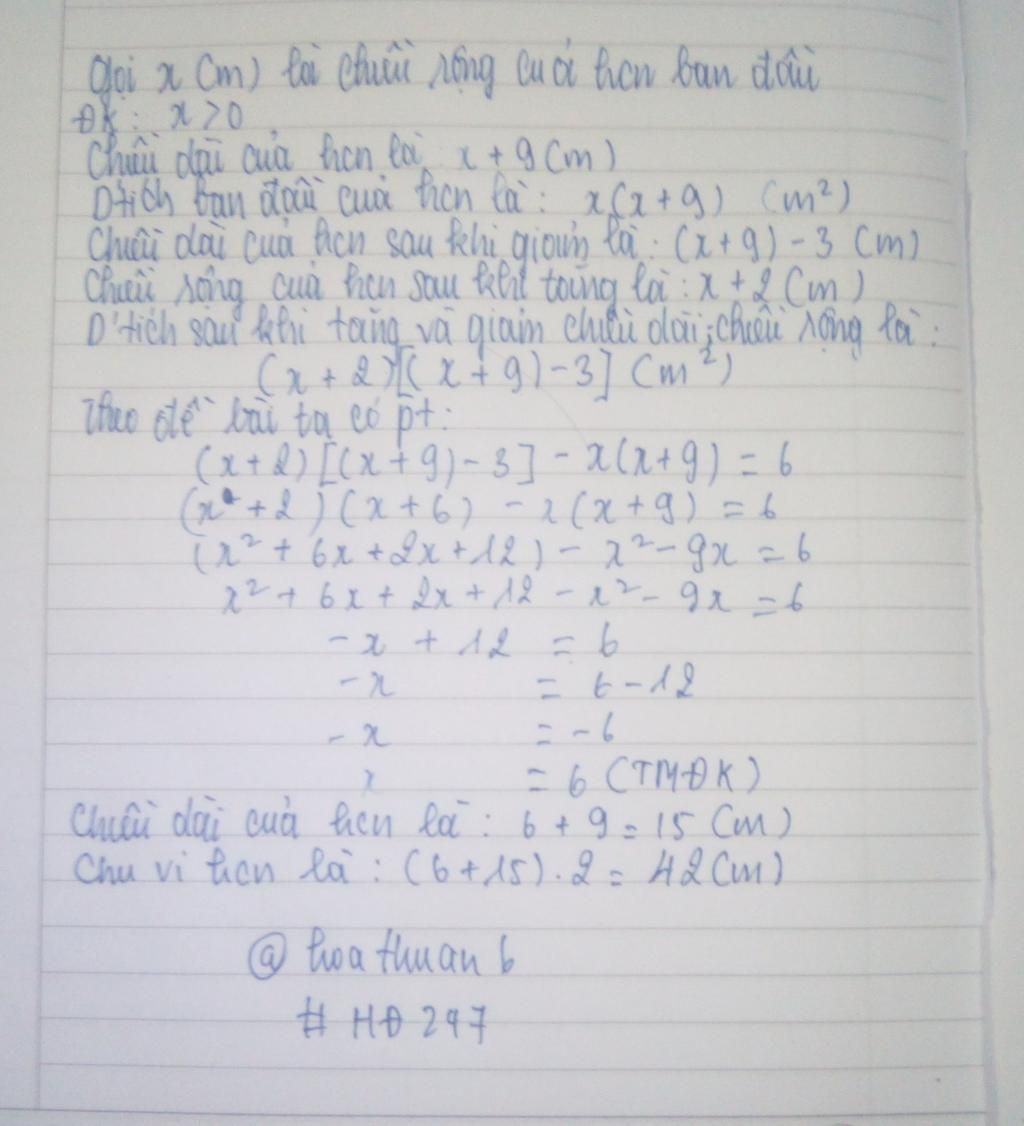 Gọi x (m) là chiều rộng của hcn ban đầu
ĐK: x > 0
Chiều dài của hcn là x + 9 (m)
D'tích ban đầu của hcn là: x(x + 9) (m²)
Chiều dài của hcn sau khi giảm là: (x + 9) - 3 (m)
Chiều rộng của hcn sau khi tăng là: x + 2 (m)
D'tích sau khi tăng và giảm chiều dài, chiều rộng là:
(x + 2)[(x + 9) - 3] (m²)
Theo đề bài ta có pt:
(x + 2)[(x + 9) - 3] - x(x + 9) = 6
(x + 2)(x + 6) - x(x + 9) = 6
(x² + 6x + 2x + 12) - x² - 9x = 6
x² + 6x + 2x + 12 - x² - 9x = 6
-x + 12 = 6
-x = 6 - 12
-x = -6
x = 6 (TMĐK)
Chiều dài của hcn là: 6 + 9 = 15 (m)
Chu vi hcn là: (6 + 15) . 2 = 42 (m)
@ hoa thuan 6
# HĐ 247